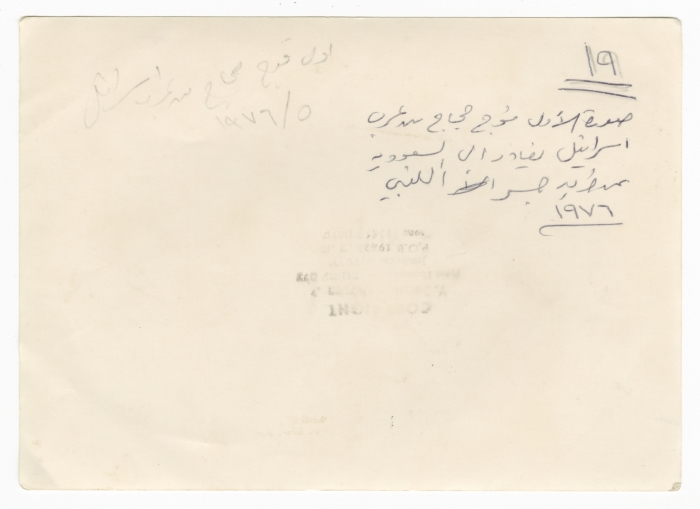 ١٩
صورة لأول فوج حجاج من عرب
اسرائيل يغادر الى السعودية
عن طريق جسر اللنبي
١٩٧٦
اول فوج حجاج من عرب اسرائيل
١٩٧٦/٥
COPYRIGHT